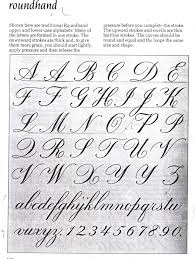 roundhand
Shown here are traditional Roundhand
upper and lower case alphabets. Many of
the letters are formed in one stroke. The
downward strokes are thick and, to give
them more grace, you should start lightly,
apply pressure and then release the
pressure before you complete the stroke.
The upward strokes and swirls are thin
hairline strokes. The curves should be
round and equal and the loops the same
size and shape.
A B C D E
F G H I J K
L M N O P
Q R S T U V
W X Y Z &
abcdefghijklmnopqrstu
vwxyz. 1234567890.